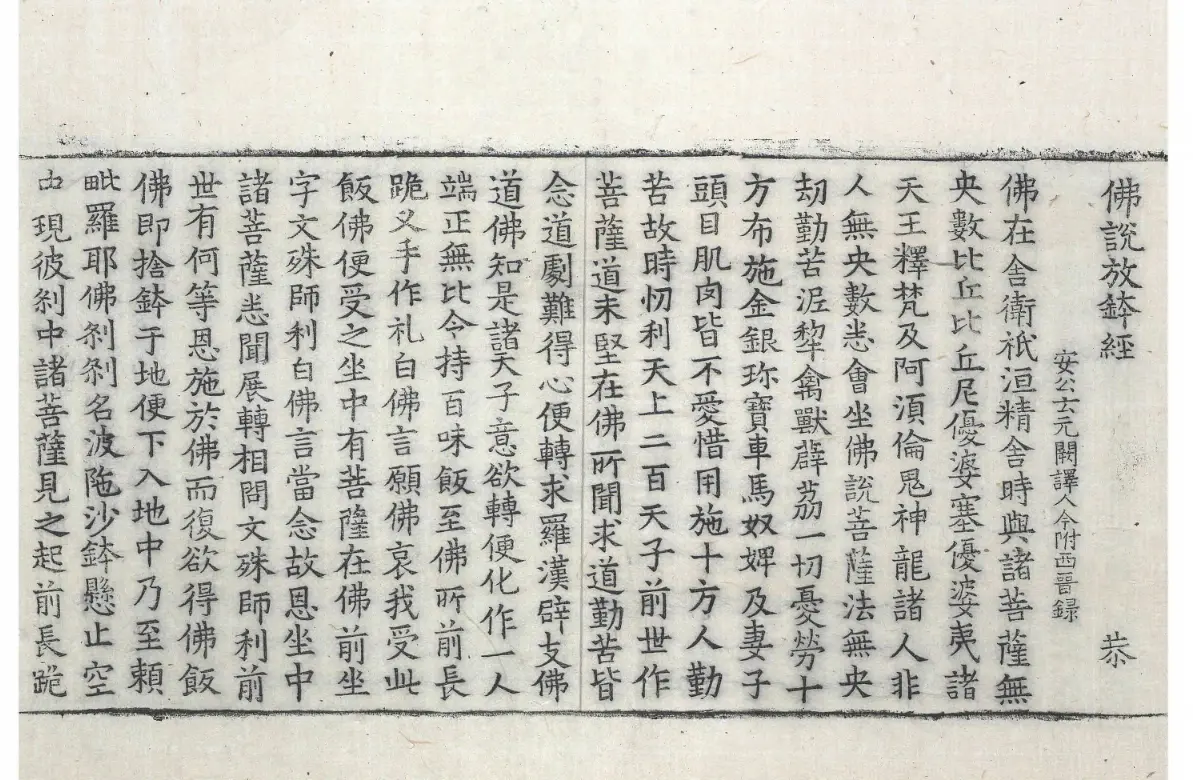 佛說放鉢經 恭
安公云元闕譯人今附西晉録
佛在舍衛祇洹精舍時與諸菩薩無
央數比丘比丘尼優婆塞優婆夷諸
天王釋梵及阿湏倫鬼神龍諸人非
人無央數悉會坐佛說菩薩法無央
劫勤苦泥犂禽獸薜荔一切憂勞十
方布施金銀珎寶車馬奴婢及妻子
頭目肌肉皆不愛惜用施十方人勤
苦故時忉利天上二百天子前世作
菩薩道未堅在佛所聞求道勤苦皆
念道劇難得心便轉求羅漢辟支佛
道佛知是諸天子意欲轉便化作一人
端正無比令持百味飯至佛所前長
跪叉手作礼白佛言願佛哀我受此
飯佛便受之坐中有菩薩在佛前坐
字文殊師利白佛言當念故恩坐中
諸菩薩悉聞展轉相問文殊師利前
世有何等恩施於佛而復欲得佛飯
佛即捨鉢于地便下入地中乃至賴
毗羅耶佛刹刹名波陁沙鉢懸止空
中現彼刹中諸菩薩見之起前長跪